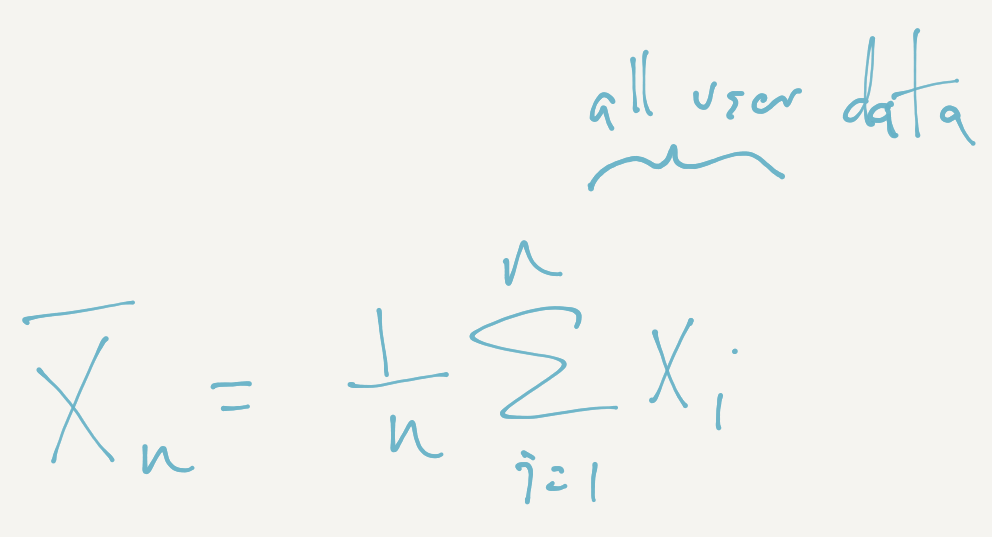 all user data
X̅ₙ = 1/n ∑ⁿᵢ₌₁ Xᵢ